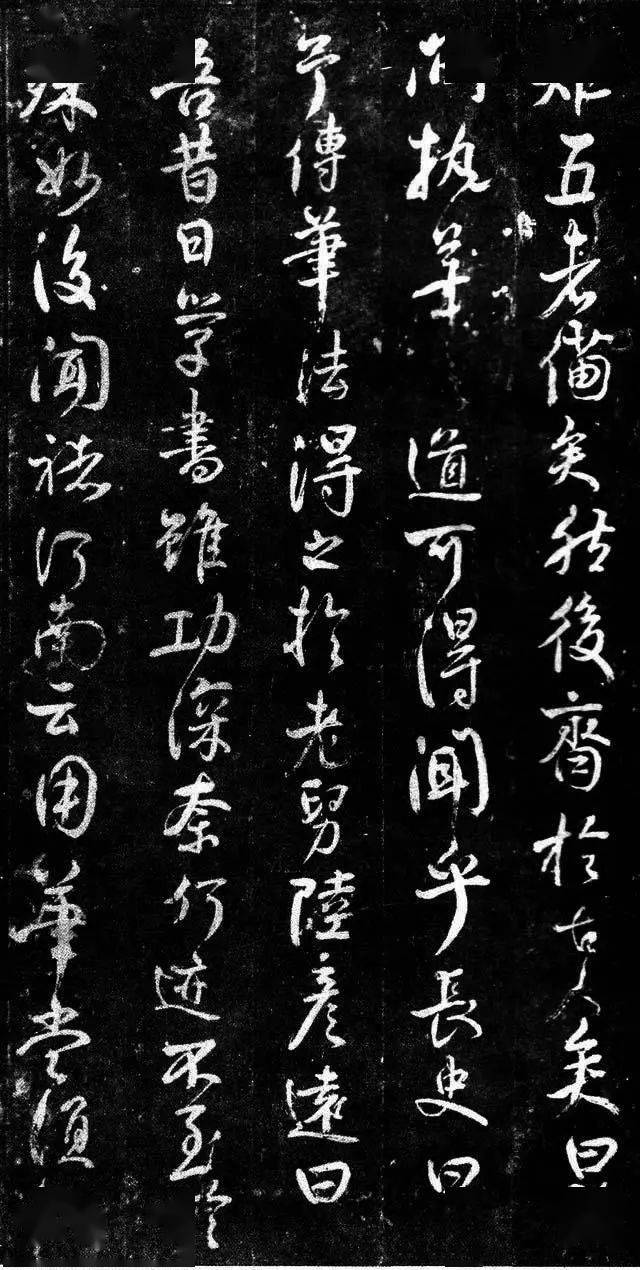 五者備矣然後齊於古人矣曰
問執筆道可得聞乎長史曰
予傳筆法得之於老舅陸彥遠曰
吾昔日学書雖功深奈何迹不至
殊妙後聞褚河南云用筆當須